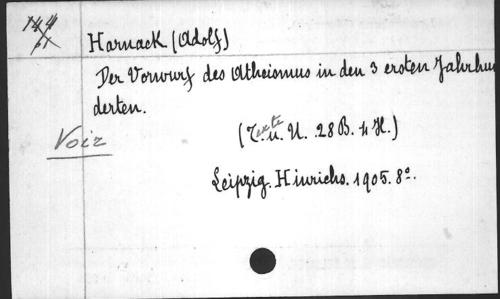 Harnack (Adolf)
Der Vorwurf des Atheismus in den 3 ersten Jahrhun
derten.
Voir
(Texte u. U. 28 B. 4 H.)
Leipzig. Hinrichs. 1905. 8°.